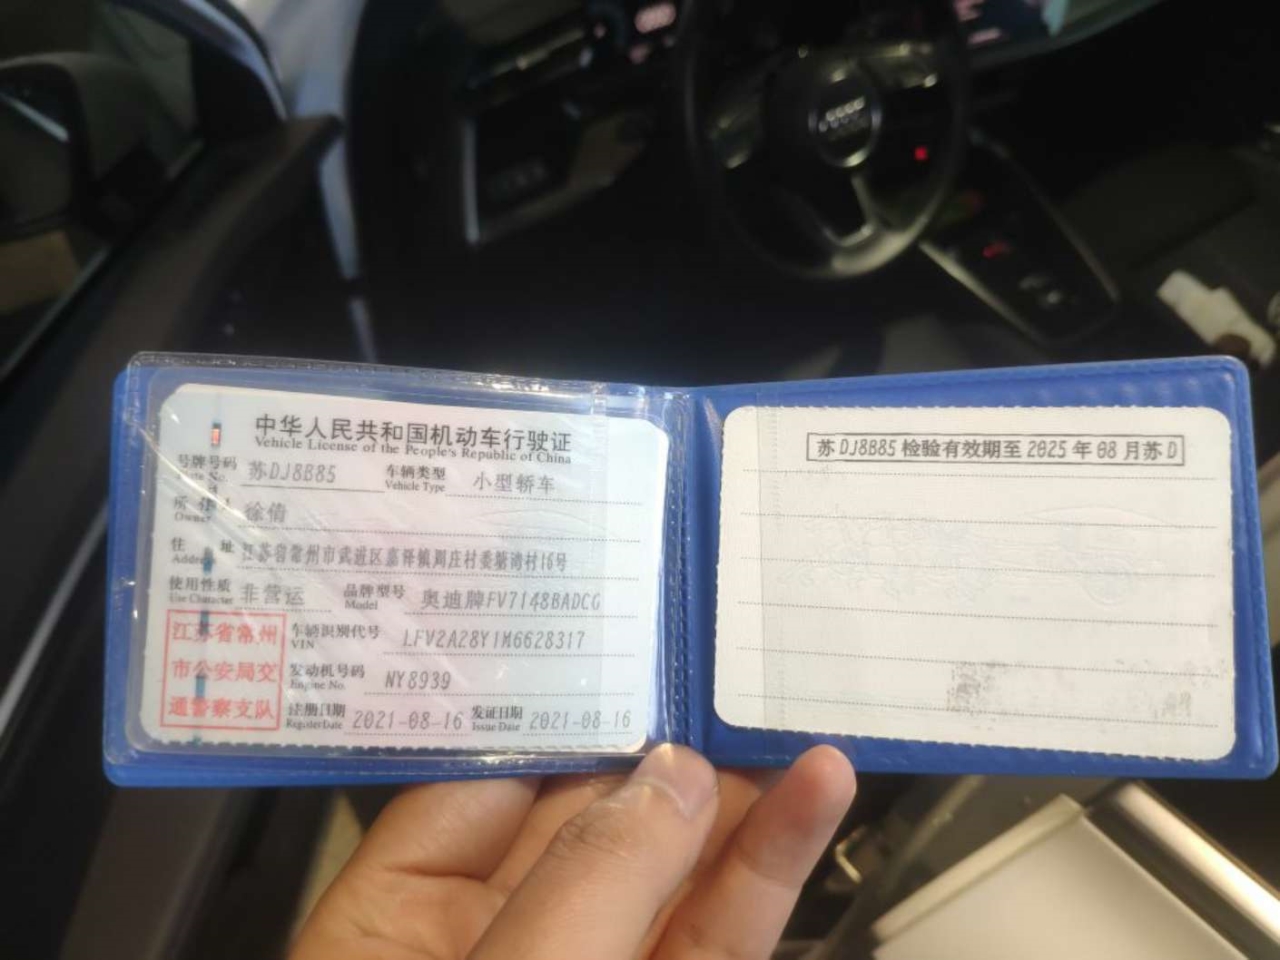 中华人民共和国机动车行驶证
Vehicle License of the People's Republic of China
号牌号码 苏DJ8B85 车辆类型 小型轿车
Plate No. Vehicle Type
所有人 徐倩
Owner
住址 江苏省常州市武进区嘉泽镇周庄村委塘湾村16号
Address
使用性质 非营运 品牌型号 奥迪牌FV7148BADCG
Use Character Model
江苏省常州
市公安局交
通警察支队
车辆识别代号 LFV2A28Y1M6628317
VIN
发动机号码 NY8939
Engine No.
注册日期 2021-08-16 发证日期 2021-08-16
Register Date Issue Date
苏DJ8B85检验有效期至2025年08月苏D